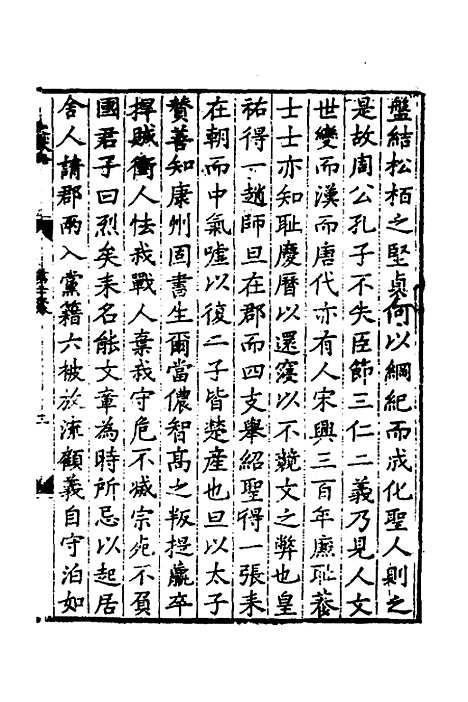 盤結松栢之堅貞何以綱紀而成化聖人則之
是故周公孔子不失臣節三仁二義乃見人文
世變而漢而唐代亦有人宋興三百年廉恥養
士士亦知恥慶曆以還寖以不競文之弊也皇
祐得一趙師旦在郡而四支舉紹聖得一張耒
在朝而中氣噓以復二子皆楚產也旦以太子
贊善知康州固書生爾當儂智高之叛提羸卒
捍賊衝人怯我戰人棄我守危不減宗死不負
國君子曰烈矣耒名能文章為時所忌以起居
舍人請郡兩入黨籍六被放流顧義自守泊如
三